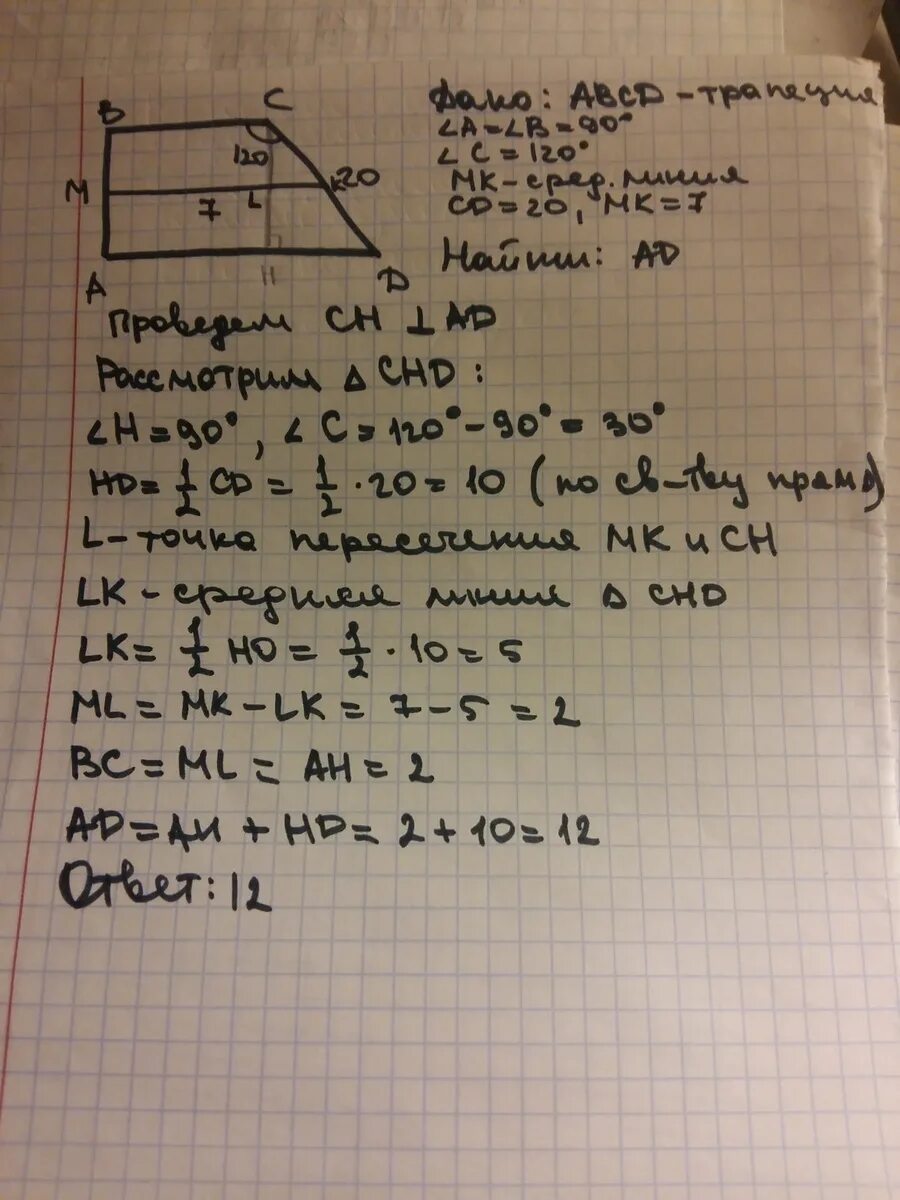 B C
120
20
M
7 L
К
A H D
Дано: ABCD – трапеция
∠A = ∠B = 90°
∠C = 120°
MK – сред. линия
CD = 20, MK = 7
Найти: AD
Проведем CH ⊥ AD
Рассмотрим △ CHD:
∠H = 90°, ∠C = 120° – 90° = 30°
HD = 1/2 CD = 1/2 · 20 = 10 (по св-тву прям △)
L – точка пересечения MK и CH
LK – средняя линия △ CHD
LK = 1/2 HD = 1/2 · 10 = 5
ML = MK – LK = 7 – 5 = 2
BC = ML = AH = 2
AD = AH + HD = 2 + 10 = 12
Ответ: 12